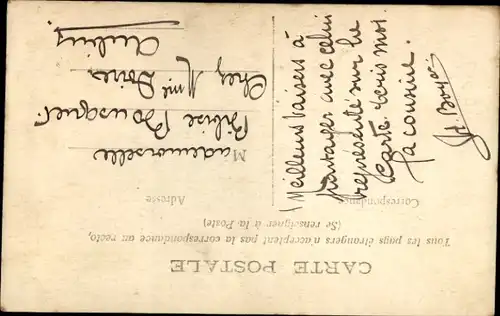 CARTE POSTALE
Tous les pays étrangers n'acceptent pas la correspondance au recto,
(Se renseigner à la Poste)
Correspondance
Adresse
Meilleurs baisers à
partager avec celui
représenté sur la
carte. Tenis moi
Ta cousine.
Jd. Boyer
Mademoiselle
Eloïse Bousquet
Chez Mme Doire
Aubin